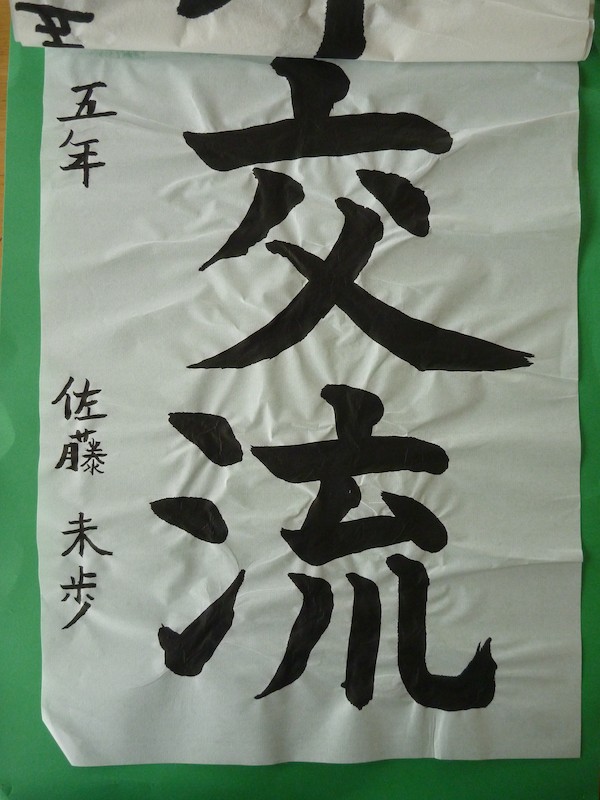 交流
五年 佐藤 未歩